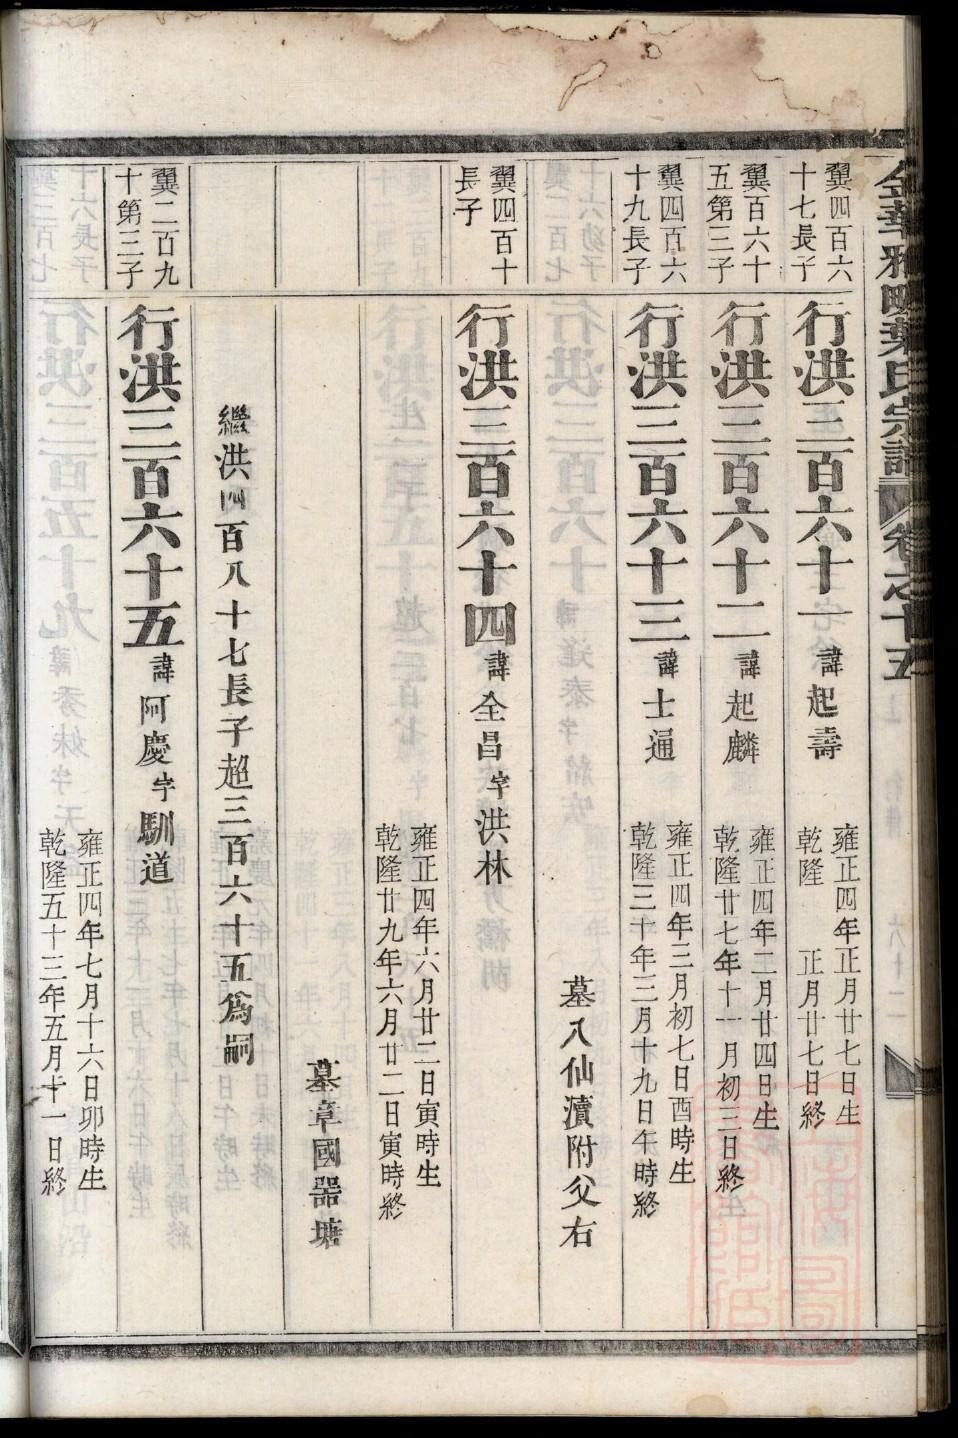 金華雅畈葉氏宗譜 卷之十五
翼四百六
十七長子
行洪三百六十一 諱起壽
雍正四年正月廿七日生
乾隆 正月廿七日終
翼百六十
五第三子
行洪三百六十二 諱起麟
雍正四年二月廿四日生
乾隆廿七年十一月初三日終
翼四百六
十九長子
行洪三百六十三 諱士通
雍正四年三月初七日酉時生
乾隆三十年三月十九日午時終
墓八仙瀆附父右
翼四百十
長子
行洪三百六十四 諱全昌字洪林
雍正四年六月廿二日寅時生
乾隆廿九年六月廿二日寅時終
墓章國器塘
繼洪四百八十七長子超三百六十五為嗣
翼二百九
十第三子
行洪三百六十五 諱阿慶字馴道
雍正四年七月十六日卯時生
乾隆五十三年五月十一日終